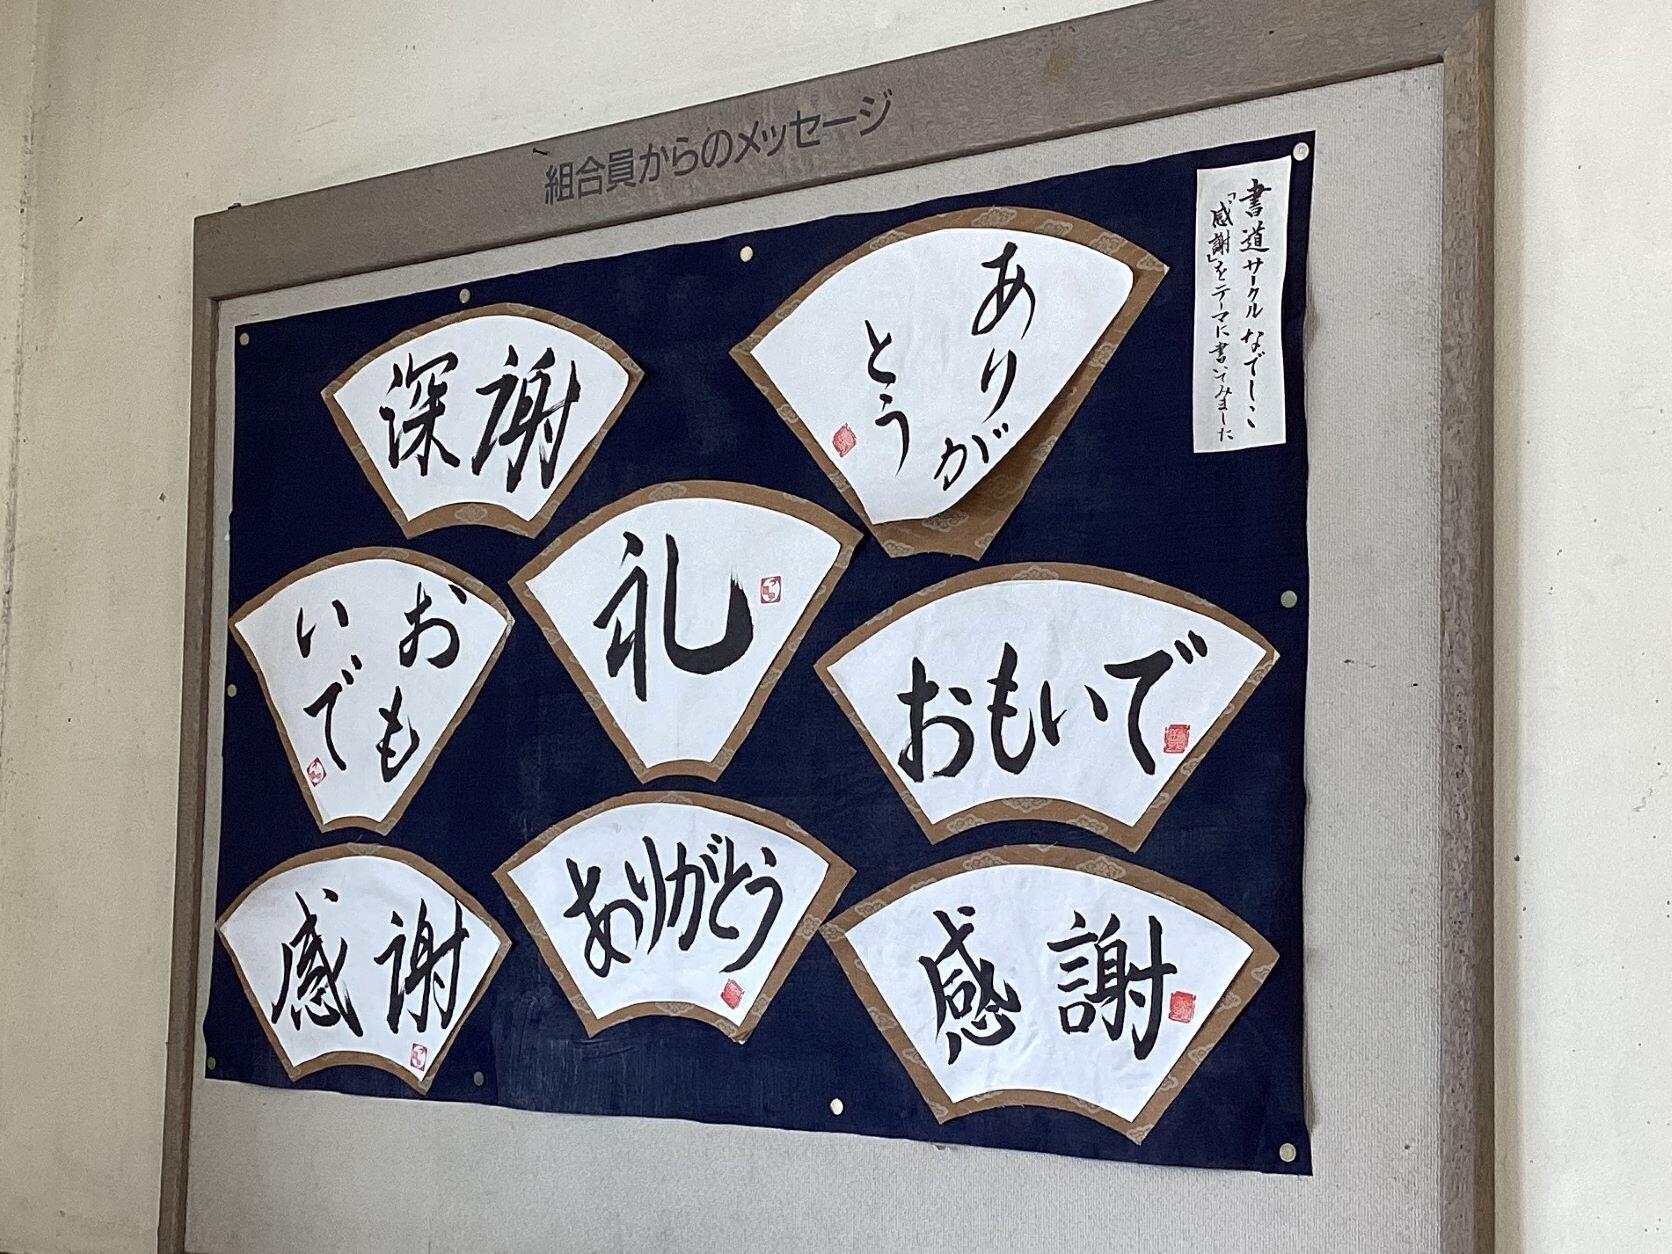 組合員からのメッセージ
書道サークル なでしこ
「感謝」をテーマに書いてみました
ありが
とう
深謝
礼
おも
いで
おもいで
感謝
ありがとう
感謝